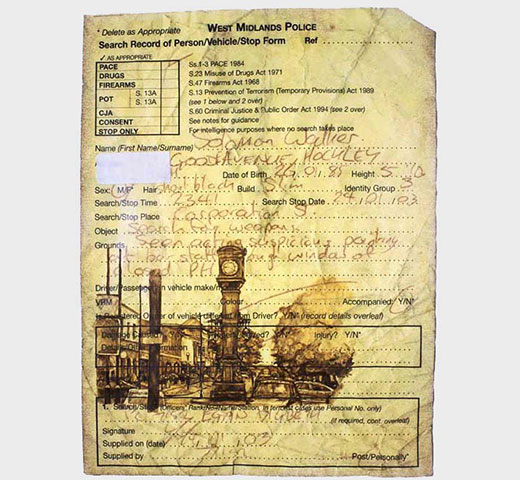 * Delete as Appropriate WEST MIDLANDS POLICE
Search Record of Person/Vehicle/Stop Form Ref
✓ AS APPROPRIATE
PACE Ss.1-3 PACE 1984
DRUGS S.23 Misuse of Drugs Act 1971
FIREARMS S.47 Firearms Act 1968
POT S. 13A S.13 Prevention of Terrorism (Temporary Provisions) Act 1989
S. 13A (see 1 below and 2 over)
CJA S.60 Criminal Justice & Public Order Act 1994 (see 2 over)
CONSENT See notes for guidance
STOP ONLY For intelligence purposes where no search takes place
Name (First Name/Surname) Solomon Walker
GOODAVENUE, HOCKLEY
Date of Birth Height
Sex: M/F Hair black Build Slim Identity Group 3
Search/Stop Time 2341 Search Stop Date 24.01.03
Search/Stop Place Corporation St
Object Search for weapons
Grounds Seen acting suspicious
at bus stop
closed PH
Driver/Passenger in vehicle make/model
VRM Colour Accompanied: Y/N*
Is Registered Owner of vehicle different from Driver? Y/N* (record details overleaf)
Damage Caused Y/N* Injury? Y/N*
1. Search/Stop (Officers' Rank/No/Name/Station. In terrorist cases use Personal No. only)
(if required, cont. overleaf)
Signature
Supplied on (date)
Supplied by Post/Personally*